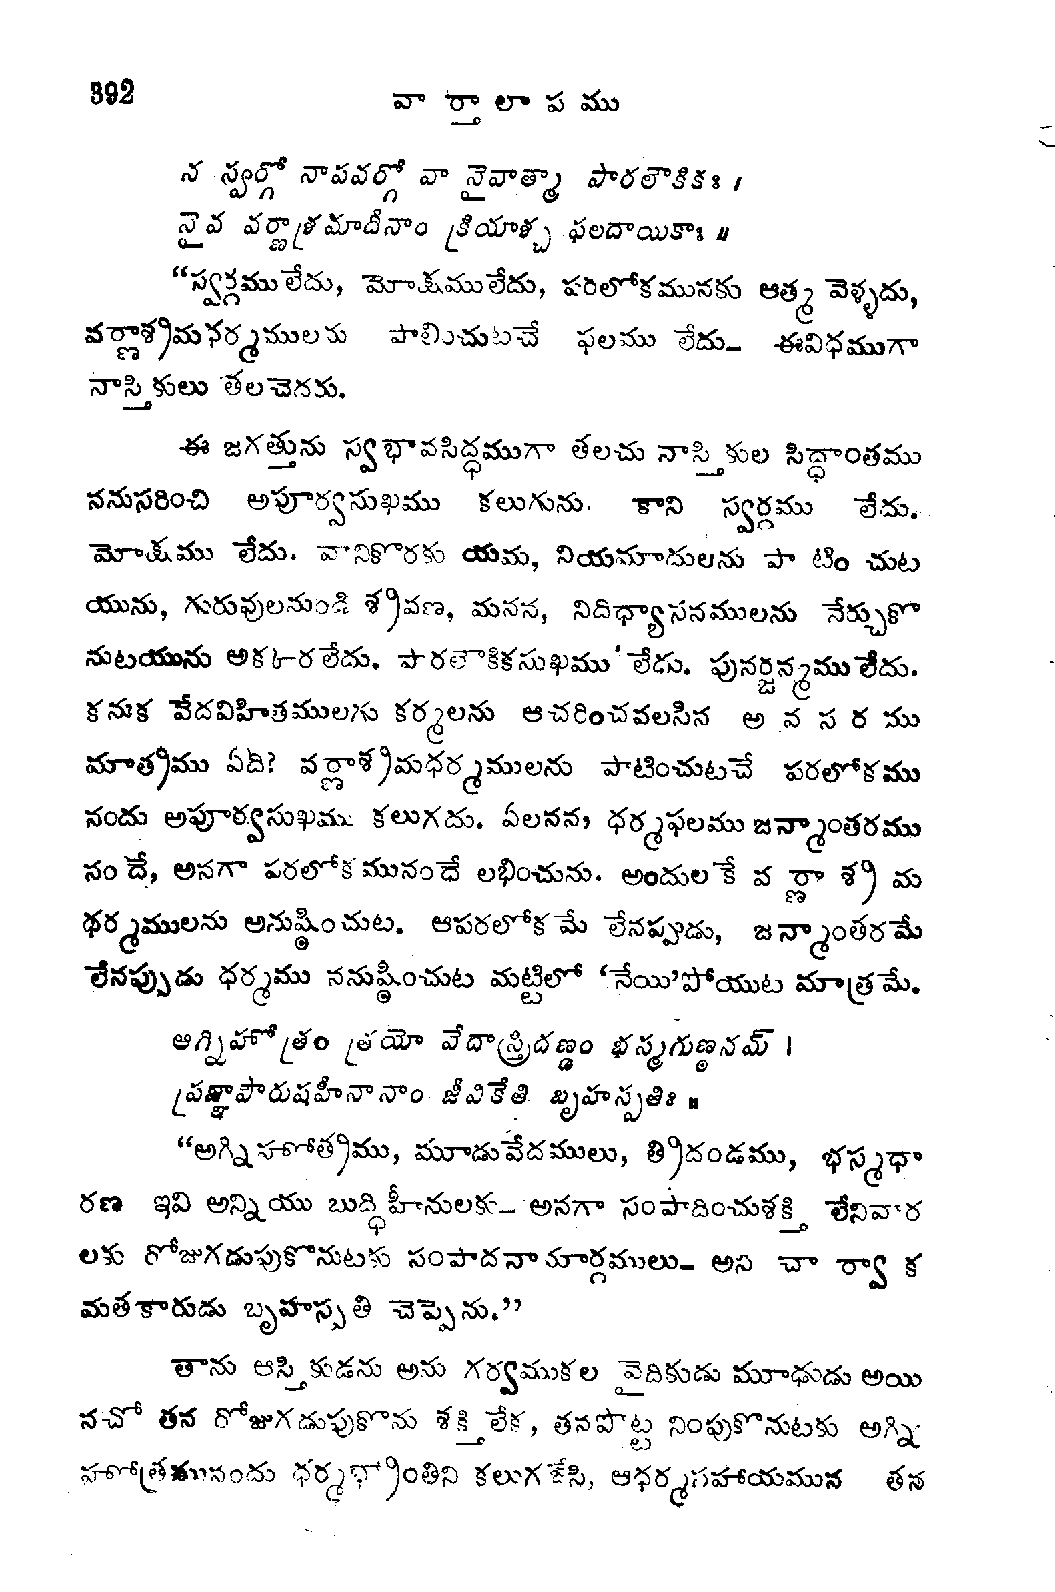 392
వా ర్తా లా ప ము
న స్వర్గో నాపవర్గో వా నైవాత్మా పారలౌకికః ।
నైవ వర్ణాశ్రమాదీనాం క్రియాశ్చ ఫలదాయికాః ॥
“స్వర్గములేదు, మోక్షములేదు, పరలోకమునకు ఆత్మ వెళ్ళదు,
వర్ణాశ్రమధర్మములను పాలించుటచే ఫలము లేదు_ ఈవిధముగా
నాస్తికులు తలచెదరు.
ఈ జగత్తును స్వభావసిద్ధముగా తలచు నాస్తికుల సిద్ధాంతము
ననుసరించి అపూర్వసుఖము కలుగును. కాని స్వర్గము లేదు.
మోక్షము లేదు. వానికొరకు యమ, నియమాదులను పా టిం చుట
యును, గురువులనుండి శ్రవణ, మనన, నిదిధ్యాసనములను నేర్చుకొ
నుటయును అక్కరలేదు. పారలౌకికసుఖము లేదు. పునర్జన్మము లేదు.
కనుక వేదవిహితములగు కర్మలను ఆచరించవలసిన అ వ స ర ము
మాత్రము ఏది? వర్ణాశ్రమధర్మములను పాటించుటచే పరలోకము
నందు అపూర్వసుఖము కలుగదు. ఏలనన, ధర్మఫలము జన్మాంతరము
నందే, అనగా పరలోకమునందే లభించును. అందులకే వ ర్ణా శ్ర మ
ధర్మములను అనుష్ఠించుట. ఆపరలోకమే లేనప్పుడు, జన్మాంతరమే
లేనప్పుడు ధర్మము ననుష్ఠించుట మట్టిలో ‘నేయి’పోయుట మాత్రమే.
అగ్నిహోత్రం త్రయో వేదాస్త్రిదణ్డం భస్మగుణ్ఠనమ్ ।
ప్రజ్ఞాపౌరుషహీనానాం జీవికేతి బృహస్పతిః ॥
“అగ్నిహోత్రము, మూడువేదములు, త్రిదండము, భస్మధా
రణ ఇవి అన్నియు బుద్ధిహీనులకు_ అనగా సంపాదించుశక్తి లేనివార
లకు రోజుగడుపుకొనుటకు సంపాదనామార్గములు_ అని చా ర్వా క
మతకారుడు బృహస్పతి చెప్పెను.”
తాను ఆస్తికుడను అను గర్వముకల వైదికుడు మూఢుడు అయి
నచో తన రోజుగడుపుకొను శక్తిలేక, తనపొట్ట నింపుకొనుటకు అగ్ని
హోత్రమునందు ధర్మభ్రాంతిని కలుగజేసి, ఆధర్మసహాయమున తన